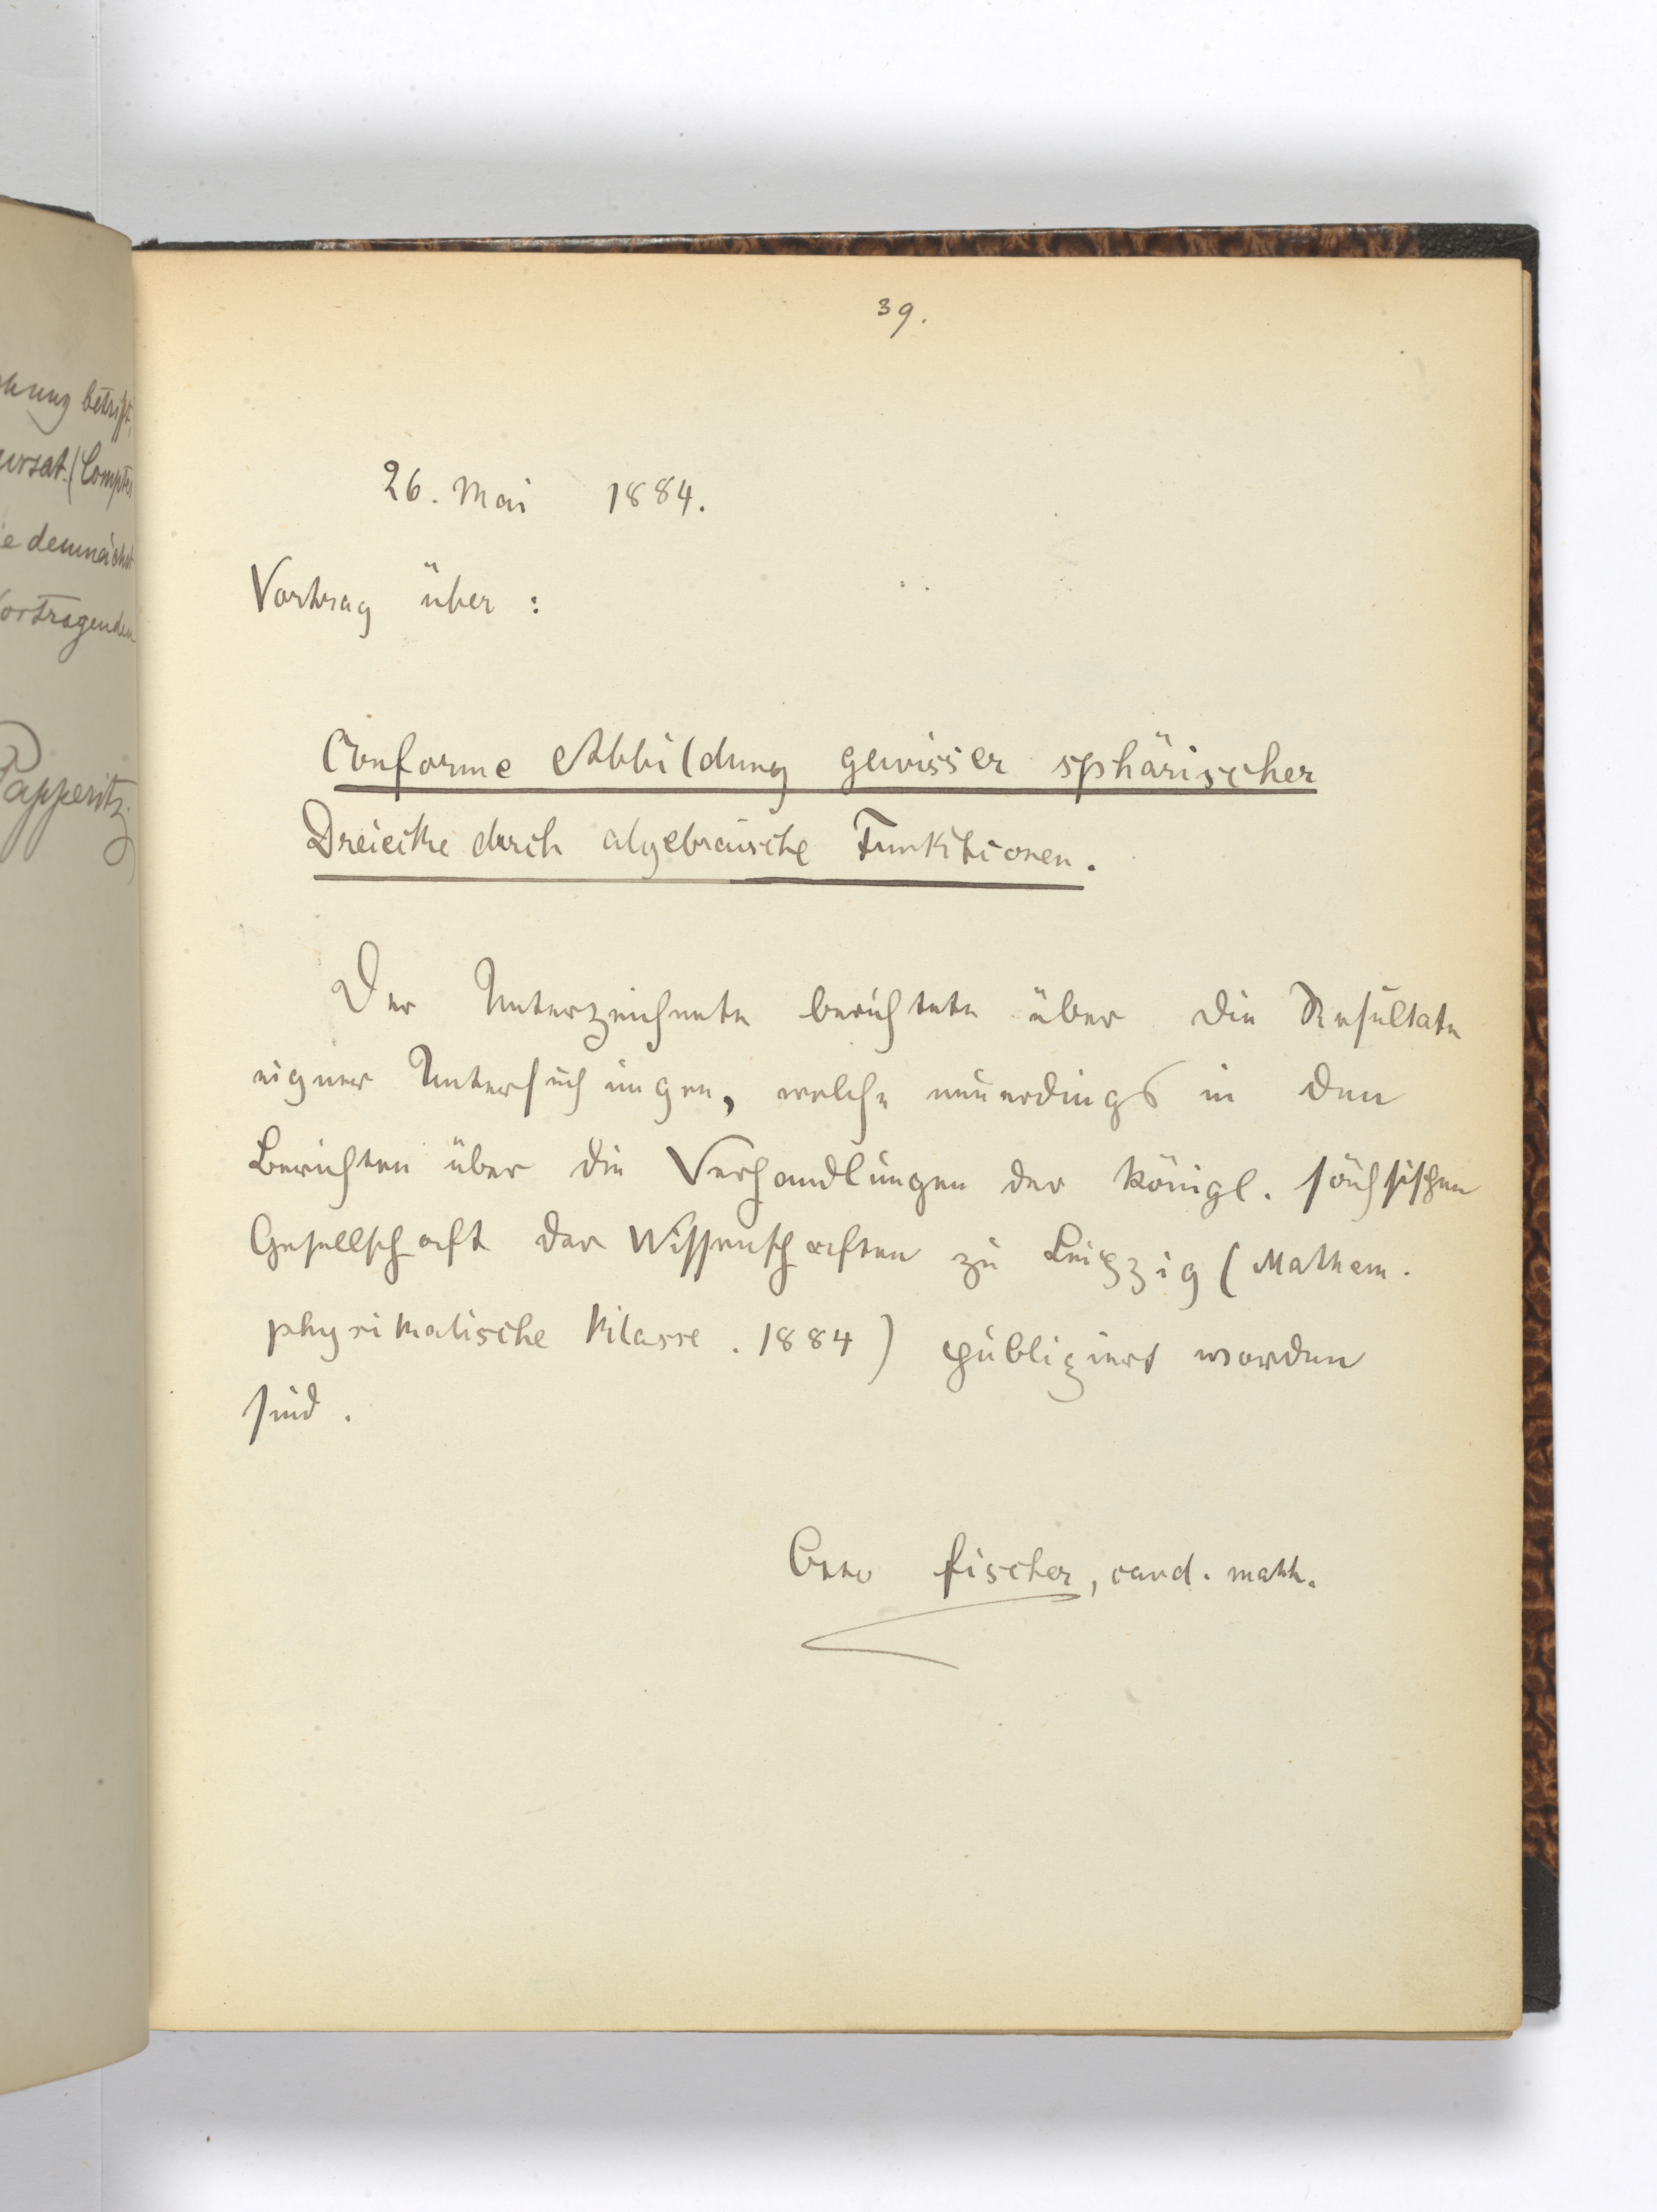 hnung betrifft,
ursat. (Comptes
ie demnächst
Vortragenden
Papperitz.
39.
26. Mai 1884.
Vortrag über :
Conforme Abbildung gewisser sphärischer
Dreiecke durch algebraische Funktionen.
Der Unterzeichnete berichtete über die Resultate
eigner Untersuchungen, welche neuerdings in den
Berichten über die Verhandlungen der königl. sächsischen
Gesellschaft der Wissenschaften zu Leipzig (Mathem.
physikalische Klasse. 1884) publiziert worden
sind.
Otto Fischer, cand. math.